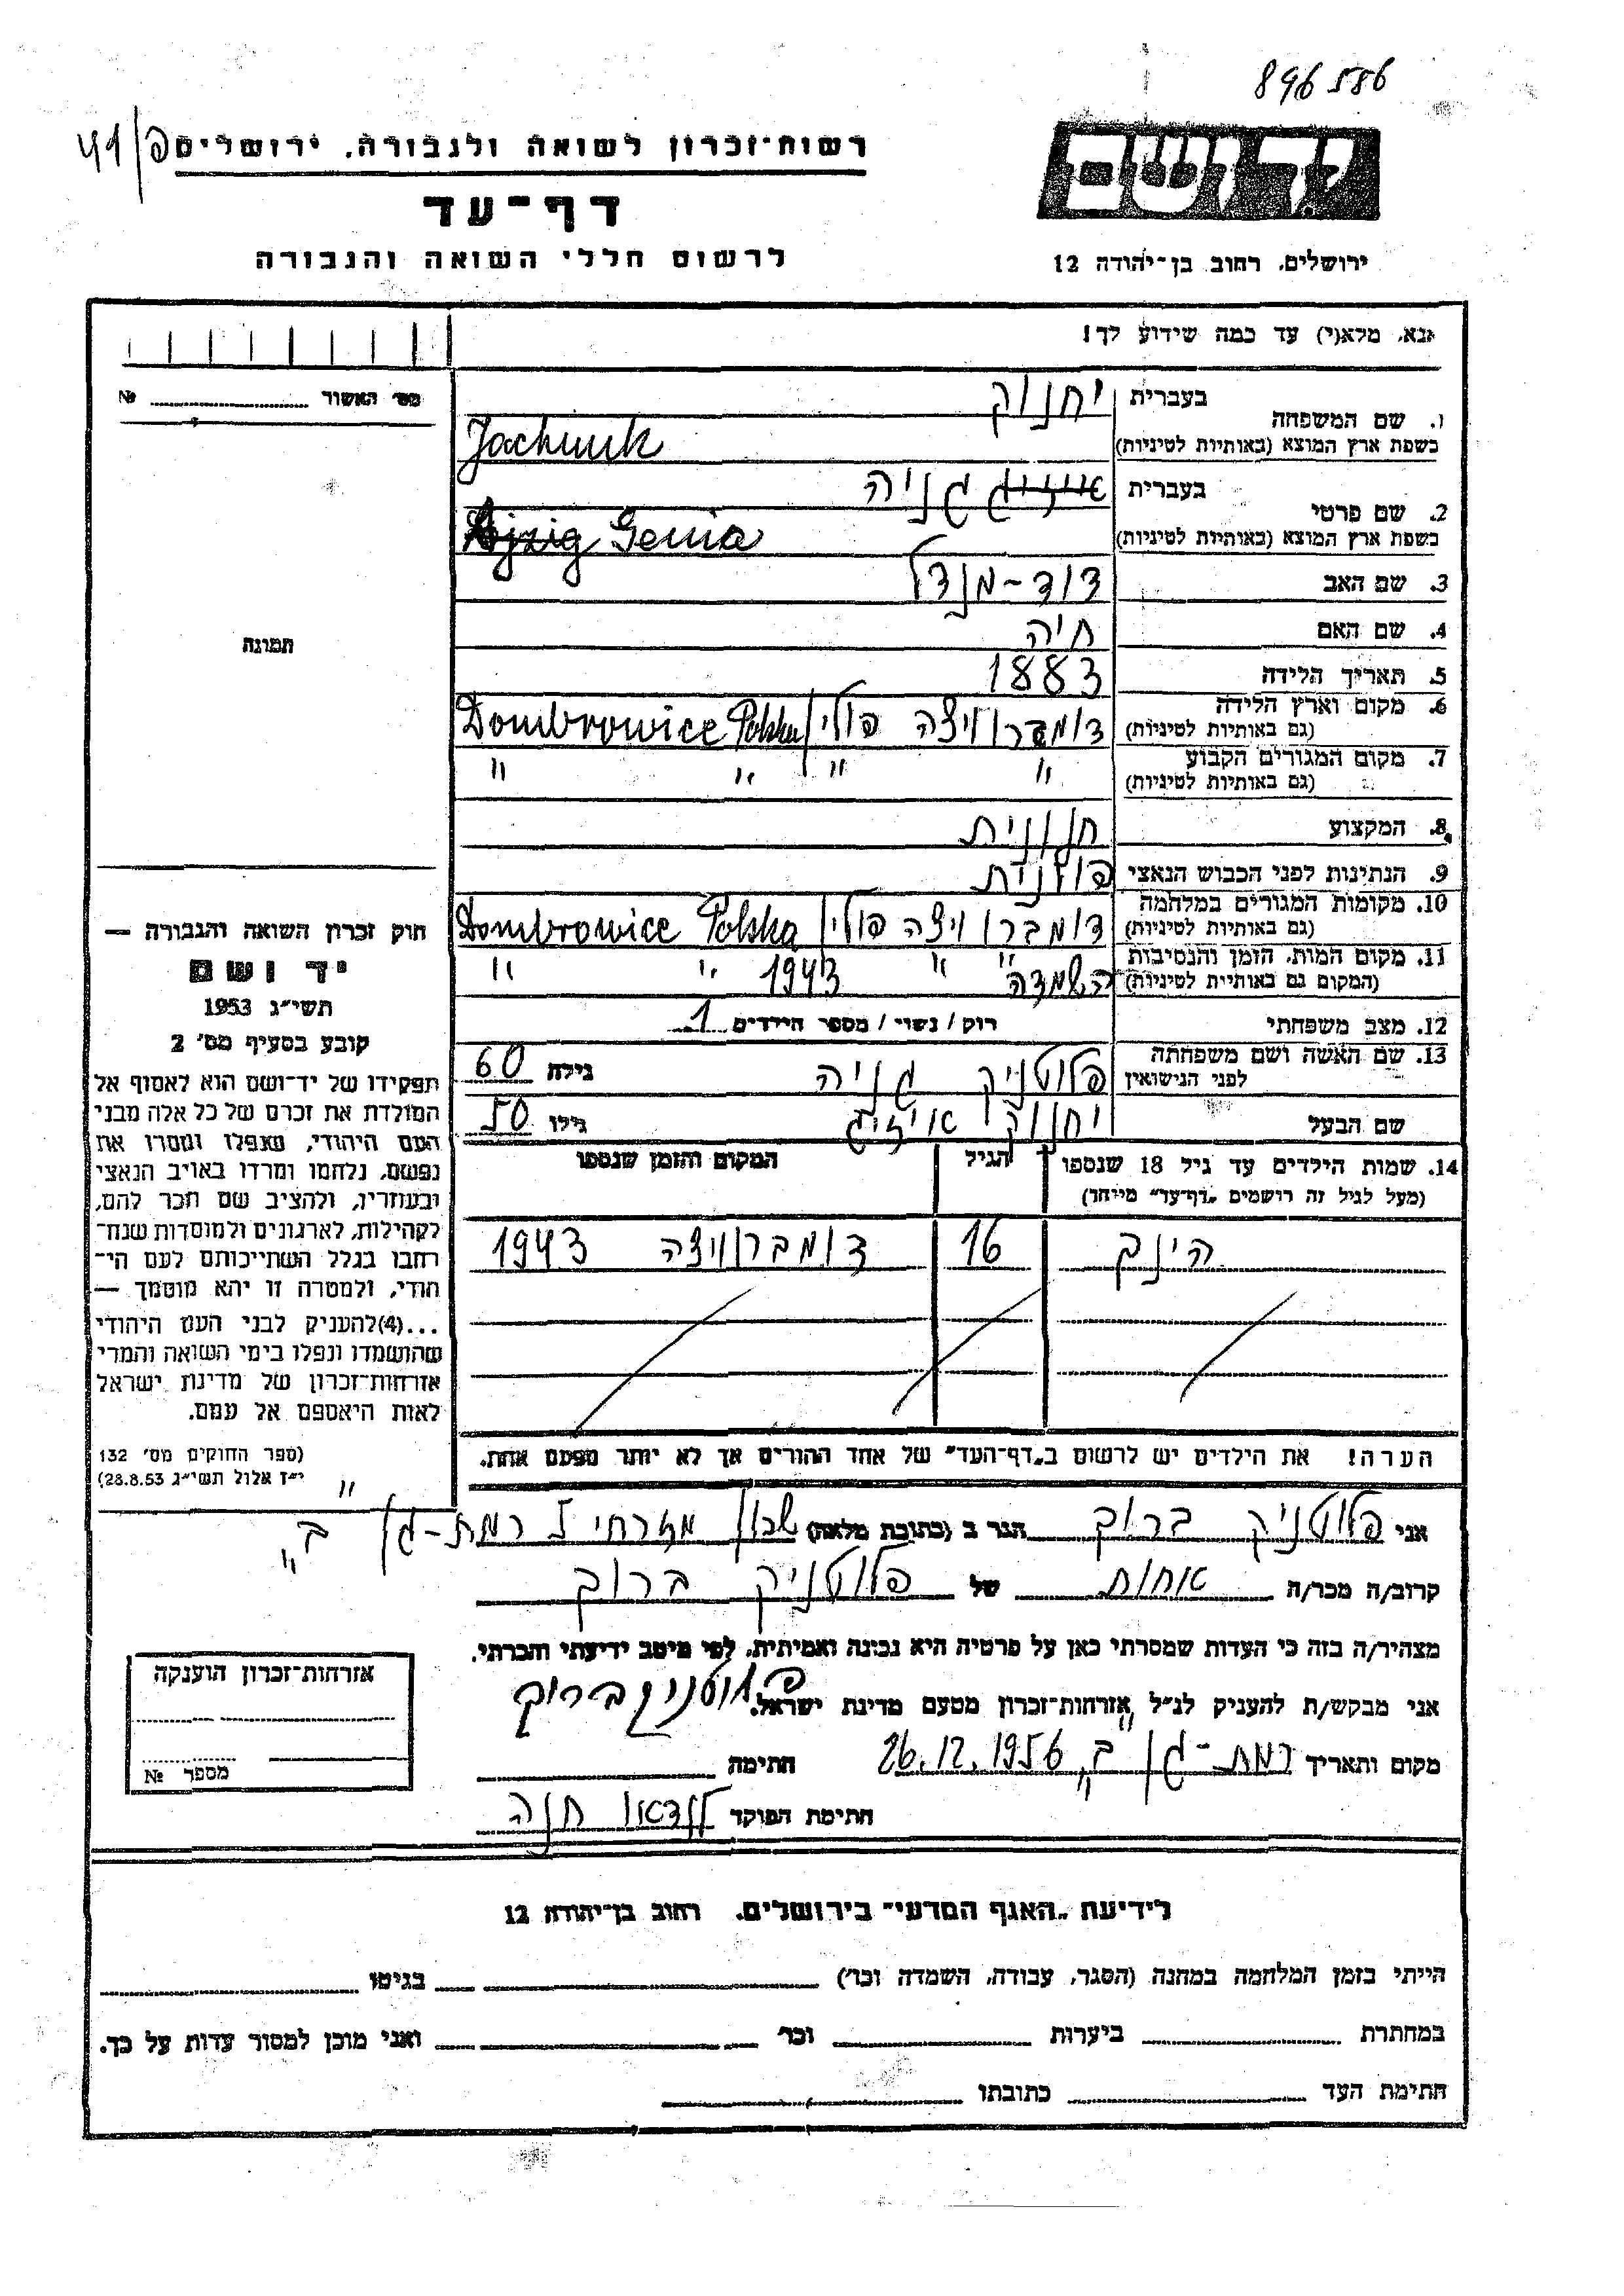 896586
רשות־זכרון לשואה ולגבורה, ירושלים
יד ושם
דף־עד
לרשום חללי השואה והגבורה
ירושלים, רחוב בן־יהודה 12
אנא, מלא(י) עד כמה שידוע לך!
מס' האשור № 
1. שם המשפחה בעברית יחנוק
בשפת ארץ המוצא (באותיות לטיניות) Jachnuk
2. שם פרטי בעברית אייזיג גניה
בשפת ארץ המוצא (באותיות לטיניות) Ajzig Genia
3. שם האב דוד-מנדל
4. שם האם חיה
תמונה
5. תאריך הלידה 1883
6. מקום וארץ הלידה דומברוויצה פולין Dombrowice Polska
(גם באותיות לטיניות)
7. מקום המגורים הקבוע " " " "
(גם באותיות לטיניות)
8. המקצוע חנונית
9. הנתינות לפני הכבוש הנאצי פולנית
10. מקומות המגורים במלחמה דומברוויצה פולין Dombrowice Polska
(גם באותיות לטיניות)
11. מקום המות, הזמן והנסיבות " " " "
(המקום גם באותיות לטיניות) השמדה 1943
12. מצב משפחתי רוק / נשוי / מספר הילדים 1
13. שם האשה ושם משפחתה לפני הנישואין פלוטניק גניה גילה 60
שם הבעל יחנוק אייזיג גילו 50
14. שמות הילדים עד גיל 18 שנספו הגיל המקום והזמן שנספו
(מעל לגיל זה רושמים "דף־עד" מיוחד)
הינך 16 דומברוויצה 1943
הערה! את הילדים יש לרשום ב"דף־העד" של אחד ההורים אך לא יותר מפעם אחת.
חוק זכרון השואה והגבורה —
יד ושם
תשי"ג 1953
קובע בסעיף מס' 2
תפקידו של יד־ושם הוא לאסוף אל
המולדת את זכרם של כל אלה מבני
העם היהודי, שנפלו ומסרו את
נפשם, נלחמו ומרדו באויב הנאצי
ובעוזריו, ולהציב שם וזכר להם,
לקהילות, לארגונים ולמוסדות שנח־
רבו בגלל השתייכותם לעם הי־
הודי, ולמטרה זו יהא מוסמך —
...(4)להעניק לבני העם היהודי
שהושמדו ונפלו בימי השואה והמרי
אזרחות־זכרון של מדינת ישראל
לאות היאספם אל עמם.
(ספר החוקים מס' 132
י"ז אלול תשי"ג 28.8.53)
אני פלוטניק ברוך הגר ב (כתובת מלאה) שכון מזרחי ז רמת-גן ב"
קרוב/ה מכר/ה אחות של פלוטניק ברוך
מצהיר/ה בזה כי העדות שמסרתי כאן על פרטיה היא נכונה ואמיתית, לפי מיטב ידיעתי והכרתי.
אני מבקש/ת להעניק לנ"ל אזרחות־זכרון מטעם מדינת ישראל.
מקום ותאריך רמת-גן ב, 26.12.1956 חתימה פלוטניק ברוך
חתימת הפוקד לנדאו חנה
אזרחות־זכרון הוענקה
מספר №
לידיעת "האגף המדעי" בירושלים, רחוב בן־יהודה 12
הייתי בזמן המלחמה במחנה (הסגר, עבודה, השמדה וכו') בגיטו
במחתרת ביערות וכו' ואני מוכן למסור עדות על כך.
חתימת העד כתובתו